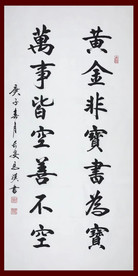 黃金非寶書為寶
萬事皆空善不空
庚子春月